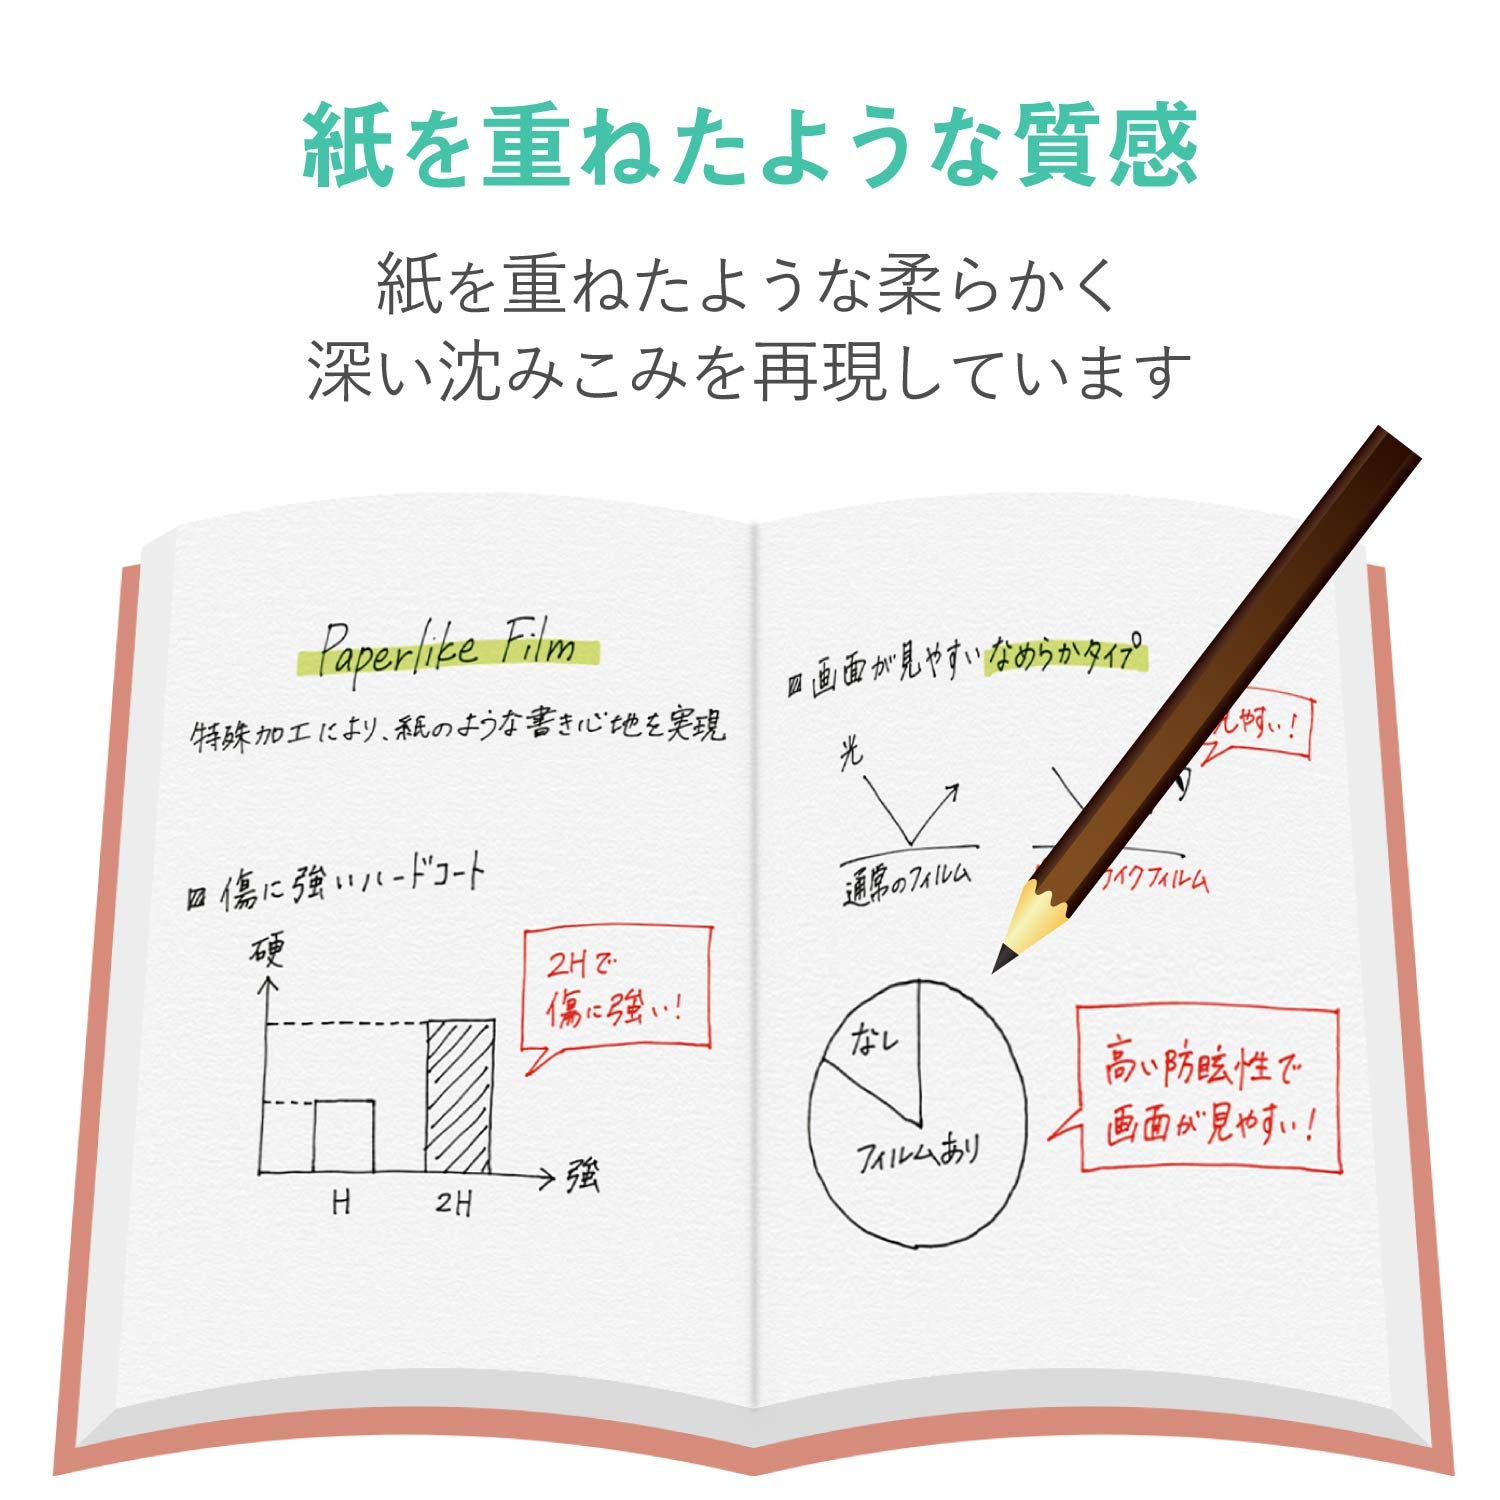 紙を重ねたような質感
紙を重ねたような柔らかく
深い沈みこみを再現しています
Paperlike Film
特殊加工により、紙のような書き心地を実現
傷に強いハードコート
硬
2Hで
傷に強い!
H
2H
強
画面が見やすいなめらかタイプ
やすい!
光
通常のフィルム
イクフィルム
なし
フィルムあり
高い防眩性で
画面が見やすい!